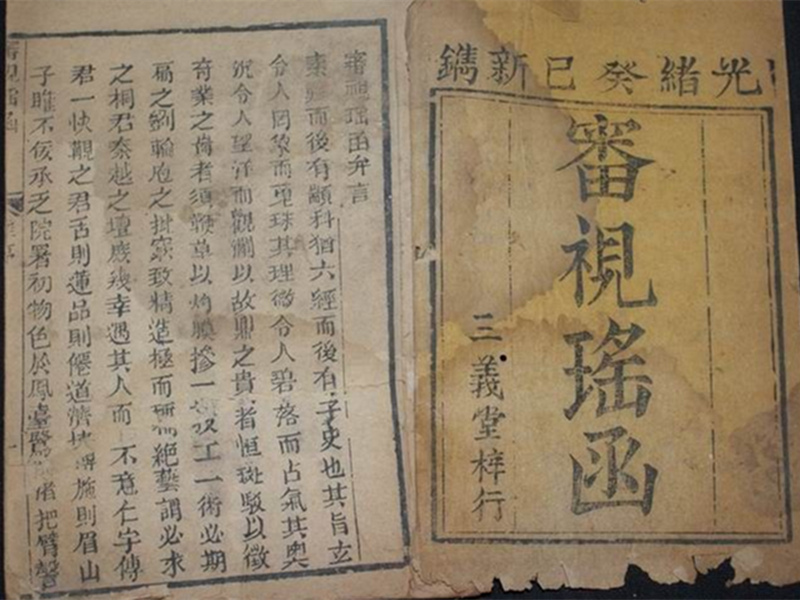 光緒癸巳新鐫
審視瑤函
三義堂梓行
審視瑤函弁言
素而後有顓科猶六經而後有子史也其旨玄
令人罔象而珠其理微令人碧落而占氣其奧
沉令人望洋而觀瀾以故鼎之貴者恒斑駁以徵
奇業之侮者須鞭草以灼膜摻一工一術必期
扁之劉輪庖之批窾致精造極而稱絕藝謂必求
之桐君秦越之壇庶幾幸遇其人而不意仁宇傅
君一快覩之君舌則蓮品則僊道濟施則眉山
子瞻不佞承乏院署初物色於鳳臺者把臂謦